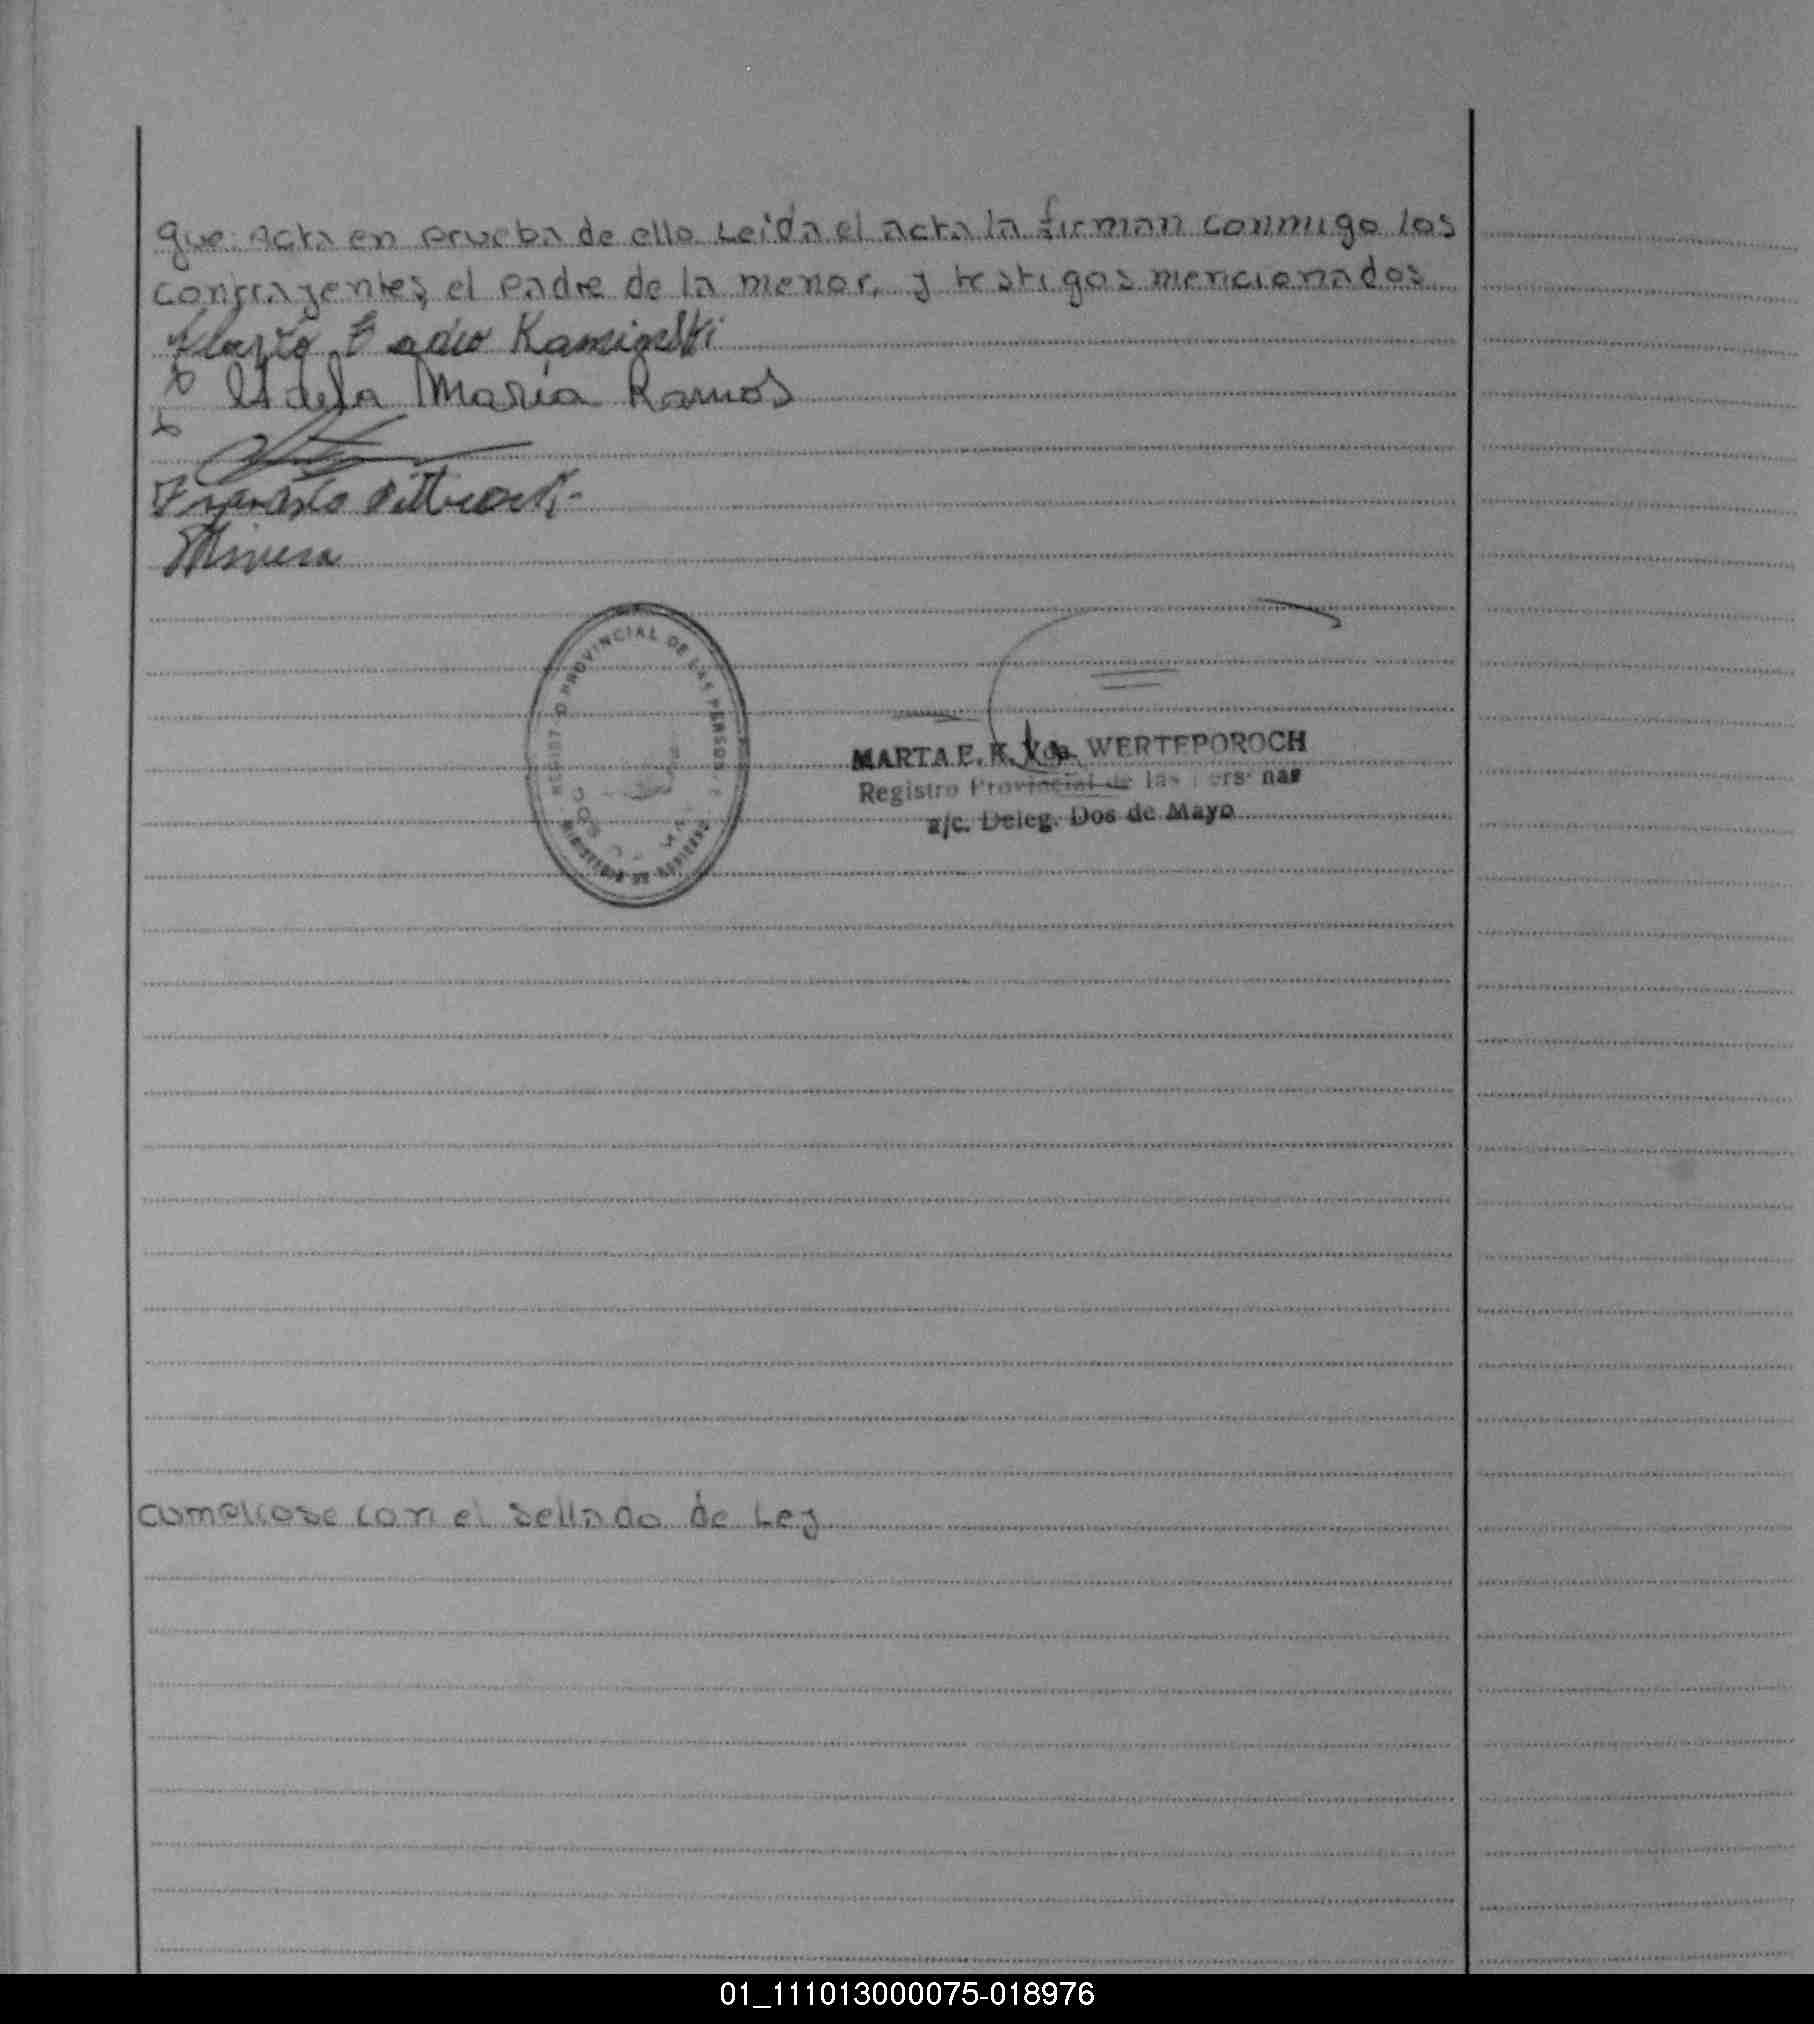 que acta en prueba de ello Leida el acta la firman conmigo los
contrayentes, el padre de la menor, y testigos mencionados
Kaminski
María Ramos
REGISTRO PROVINCIAL DE LAS PERSONAS
MINISTERIO DE GOBIERNO
MARTA E. K. Vda. WERTEPOROCH
Registro Provincial de las Personas
a/c. Deleg. Dos de Mayo
cumpliose con el sellado de Ley
01_111013000075-018976